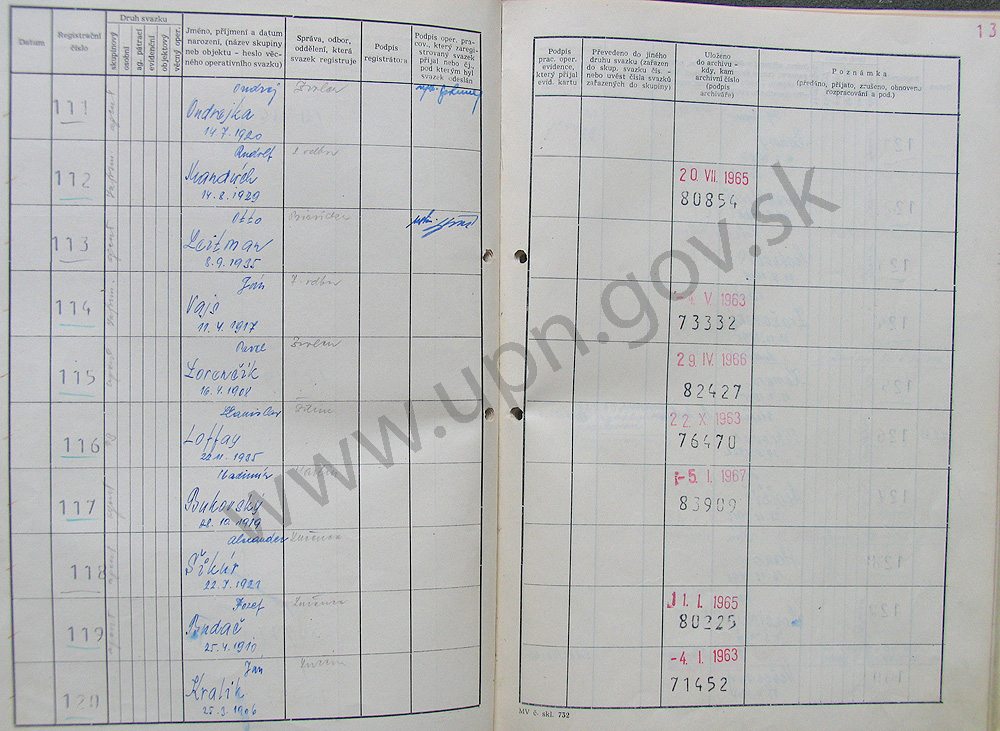 13
Datum
Registrační číslo
Druh svazku
skupinový
osobní
ag. pátrací
evidenční
objektový
věcný oper.
Jméno, příjmení a datum
narození, (název skupiny
neb objektu - heslo věc-
ného operativního svazku)
Správa, odbor,
oddělení, která
svazek registruje
Podpis
registrátora
Podpis oper. pra-
cov., který zaregi-
stroval svazek
přijal nebo čj.
pod kterým byl
svazek odeslán
Podpis
prac. oper.
evidence,
který přijal
evid. kartu
Převedeno do jiného
druhu svazku (zařazen
do skup. svazku čís. -
nebo uvést čísla svazků
zařazených do skupiny)
Uloženo
do archivu -
kdy, kam
archivní číslo
(podpis
archiváře)
Poznámka
(předáno, přijato, zrušeno, obnoveno
rozpracování a pod.)
111 agent Ondrej
Ondrejka
14.7.1920
112 Rudolf 2. odbor
14.8.1929
20 VII. 1965
80854
113 agent Otto
Leitman
8.9.1935
114 Ján 7. odbor
Vajs
11.4.1917
V. 1963
73332
115 agent Pavel
Lorenčík
16.4.1908
29. IV. 1966
82427
116 Stanislav
Loffay
22.11.1935
22. X. 1963
76470
117 agent Vladimír
Bukovský
28.10.1919
-5. I. 1967
83909
118 agent Alexander Lučenec
22.7.1921
119 agent Jozef Lučenec
Budač
25.4.1910
11. I. 1965
80225
120 Ján
Králik
25.3.1906
-4. I. 1963
71452
MV č. skl. 732
www.upn.gov.sk